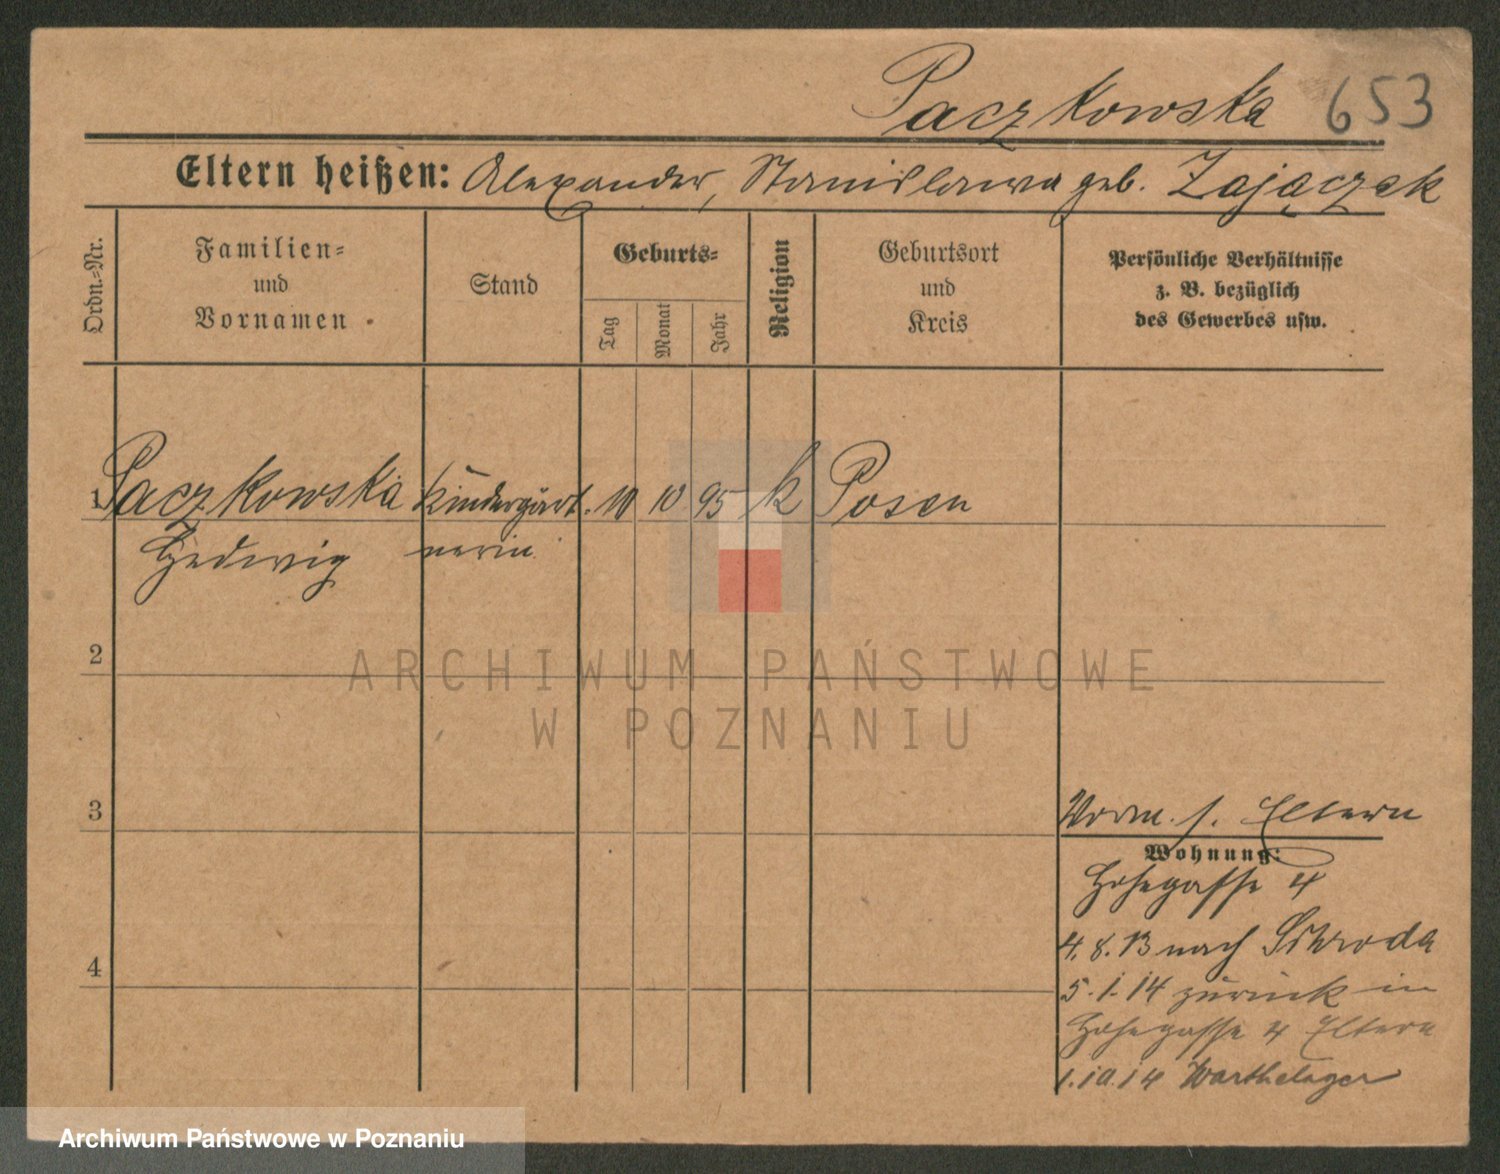 Paczkowska 653
Eltern heißen: Alexander, Stanislawa geb. Zajączek
Ordn.-Nr.
Familien-
und
Vornamen
Stand
Geburts-
Tag
Monat
Jahr
Religion
Geburtsort
und
Kreis
Persönliche Verhältnisse
z. B. bezüglich
des Gewerbes usw.
1 Paczkowska Kindergärt. 10 10 95 k Posen
Hedwig nerin
2
ARCHIWUM PAŃSTWOWE
W POZNANIU
3
Vorm. s. Eltern
Wohnung:
Hohegasse 4
4
4.8.13 nach Schroda
5.1.14 zurück in
Hohegasse 4 Eltern
1.10.14 Warthelager
Archiwum Państwowe w Poznaniu